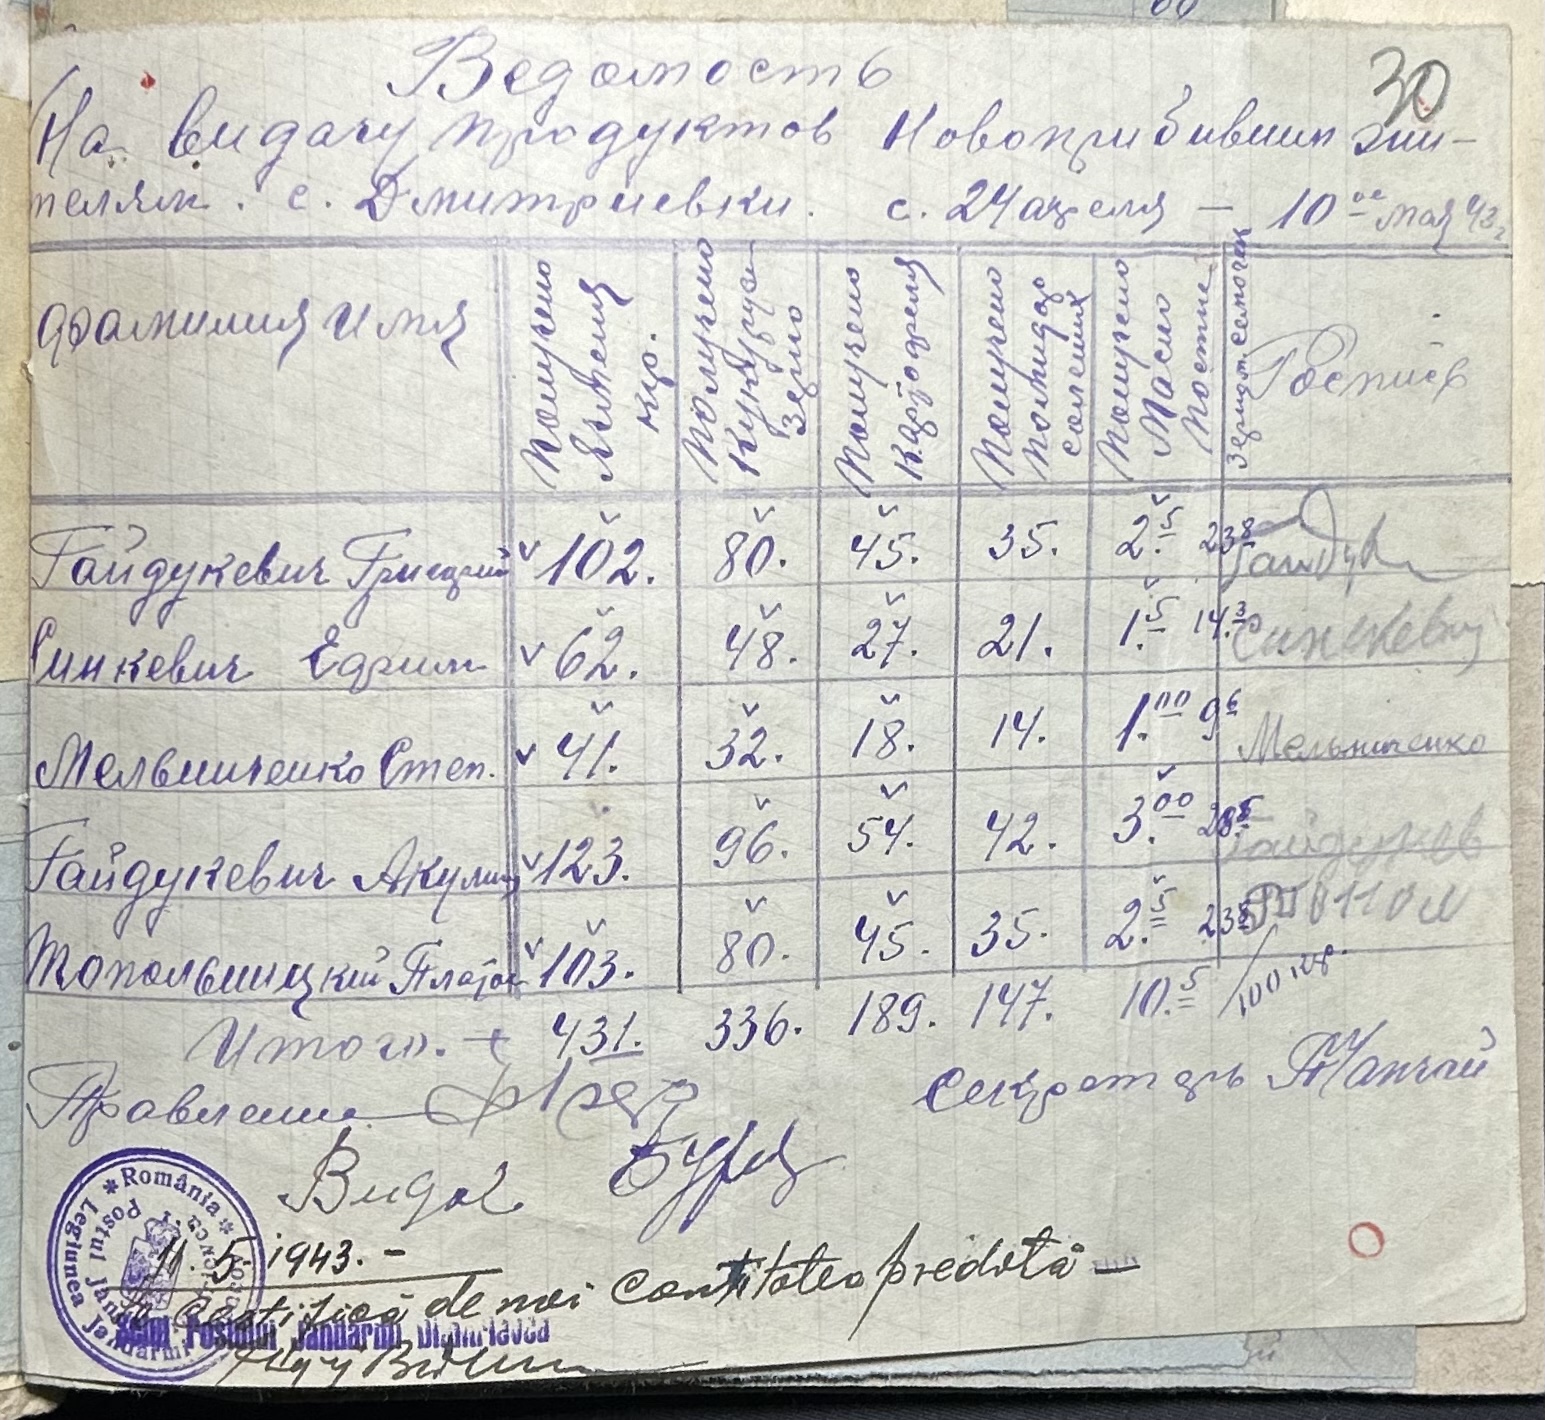 30
Ведомость
На видачу продуктов Новоприбившим жи-
телям. с. Дмитриевки. с. 24 апреля — 10 00 мая 43 г
Фамилия Имя
Получено Ячменя кгр.
Получено Кукурузи Зерно
Получено Картофеля
Получено помидор солених
Получено Масло Постное
Роспись
Гайдукевич Григорий 102. 80. 45. 35. 2.5 23 8 Гайдук
Синкевич Ефрим 62. 48. 27. 21. 1.5 14.3 Синкевич
Мельниченко Степ. 41. 32. 18. 14. 1.00 9 6 Мельниченко
Гайдукевич Акулина 123. 96. 54. 42. 3.00 28 Гайдукев
Топольницкий Платон 103. 80. 45. 35. 2.5 23
Итого. 431. 336. 189. 147. 10.5 100 кгр.
Правления Секретарь
Видал
România
Legiunea Jandarmi
Postul Jandarmi
11. 5. 1943. –
Se certifică de noi cantitatea predată –
Șeful Postului Jandarmi Dimitrievca